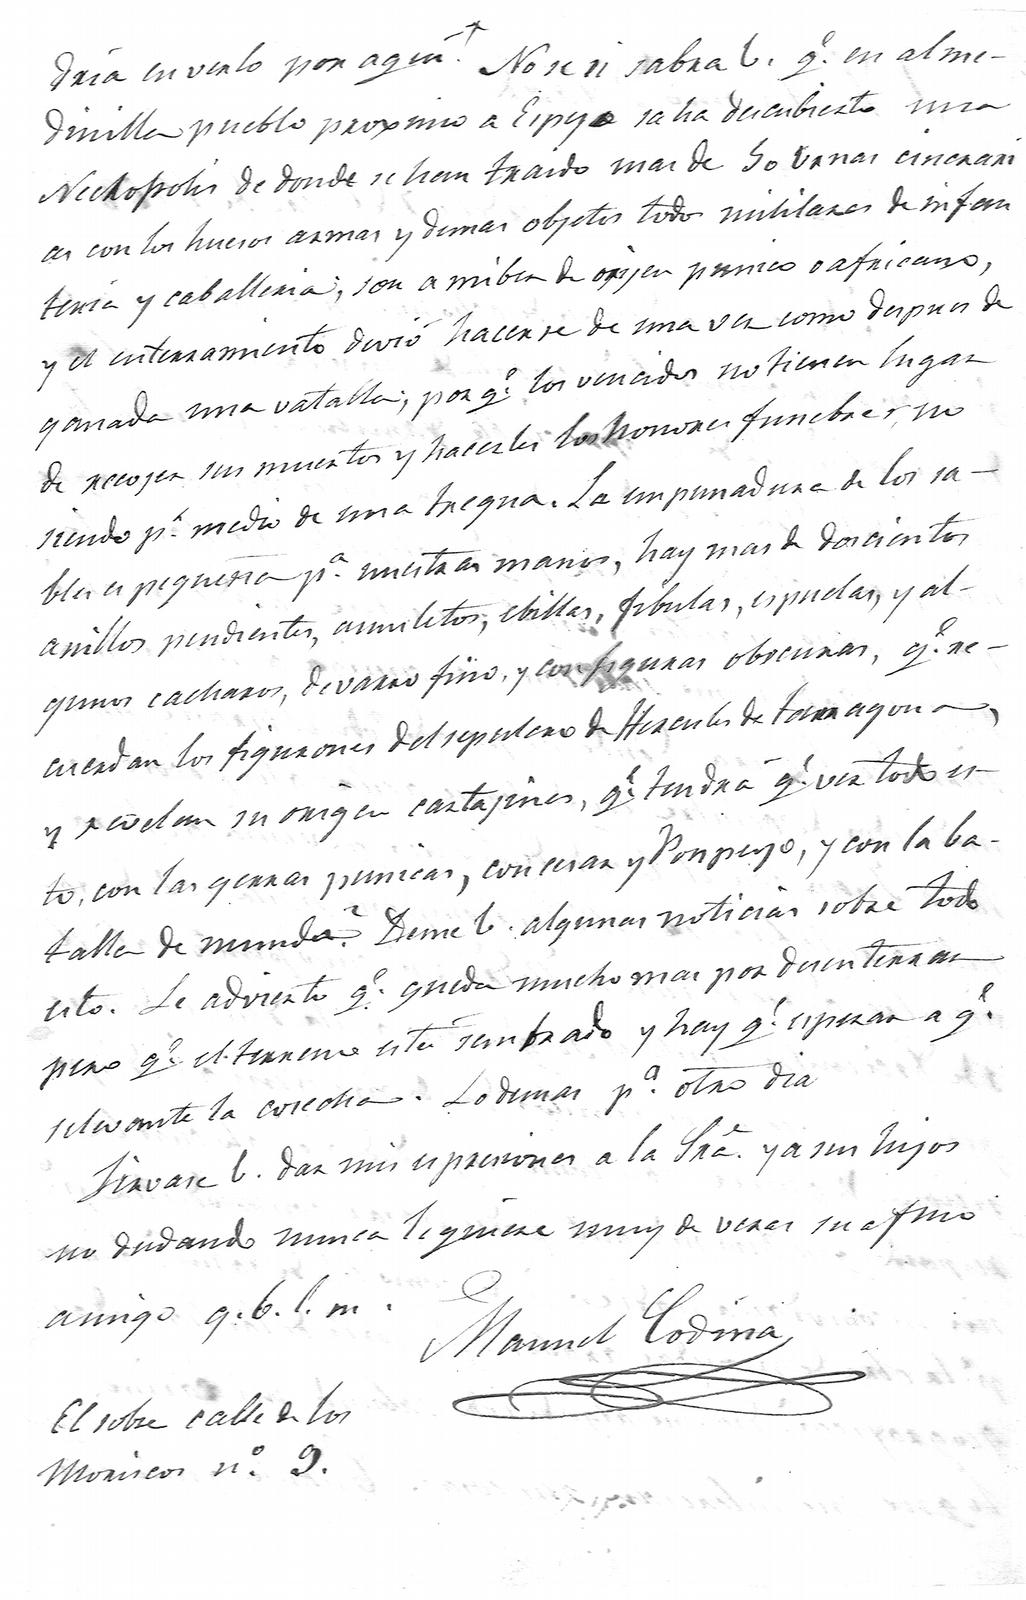 dria en verlo por aqui. No se si sabra V. qe. en alme-
dinilla pueblo proximo a Espejo sa ha descubierto una
Neckopolis de donde se han traido mas de 50 Urnas cinerari
as con los huesos armas y demas objetos todos militares de infan
teria y caballeria; son a mi ber de orijen punico o africano,
y el enterramiento devió hacerse de una vez como despues de
ganada una vatalla; por qe. los vencidos no tienen lugar
de recojer sus muertos y hacerles los honores funebres, no
siendo pr. medio de una tregua. La empunadura de los sa-
bles es pequeña pa. nuestras manos, hay mas de doscientos
anillos pendientes, amuletos, ebillas, fibulas, espuelas, y al-
gunos cacharos, de varro fino, y con figuras obscuras, qe. re-
cuerdan los figurones del sepulcro de Hercules de tarragona,
y revelan su origen cartajines, qe. tendrá qe. ver todo es-
to, con las gerras punicas, con cesar y Ponpeyo, y con la ba-
talla de munda? Deme V. algunas noticias sobre todo
esto. Le advierto qe. queda mucho mas por desenterrar
pero qe. el terreno está sembrado y hay qe. esperar a qe.
se levante la cosecha. Lo demas pa. otro dia
Sirvase V. dar mis espresiones a la Sra. y a sus hijos
no dudando nunca le quiere muy de veras su afmo
amigo q. b. l. m.
Manuel Codina
El sobre calle de los
Moriscos nº. 9.